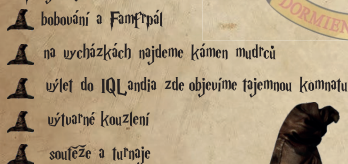 DORMIEN
bobování a Famfrpál
na vycházkách najdeme kámen mudrců
výlet do IQLandia zde objevíme tajemnou komnatu
výtvarné kouzlení
soutěže a turnaje